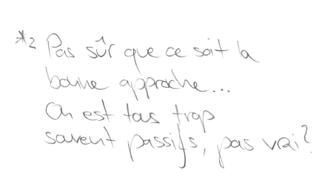 *2 Pas sûr que ce soit la
bonne approche...
On est tous trop
souvent passifs, pas vrai?